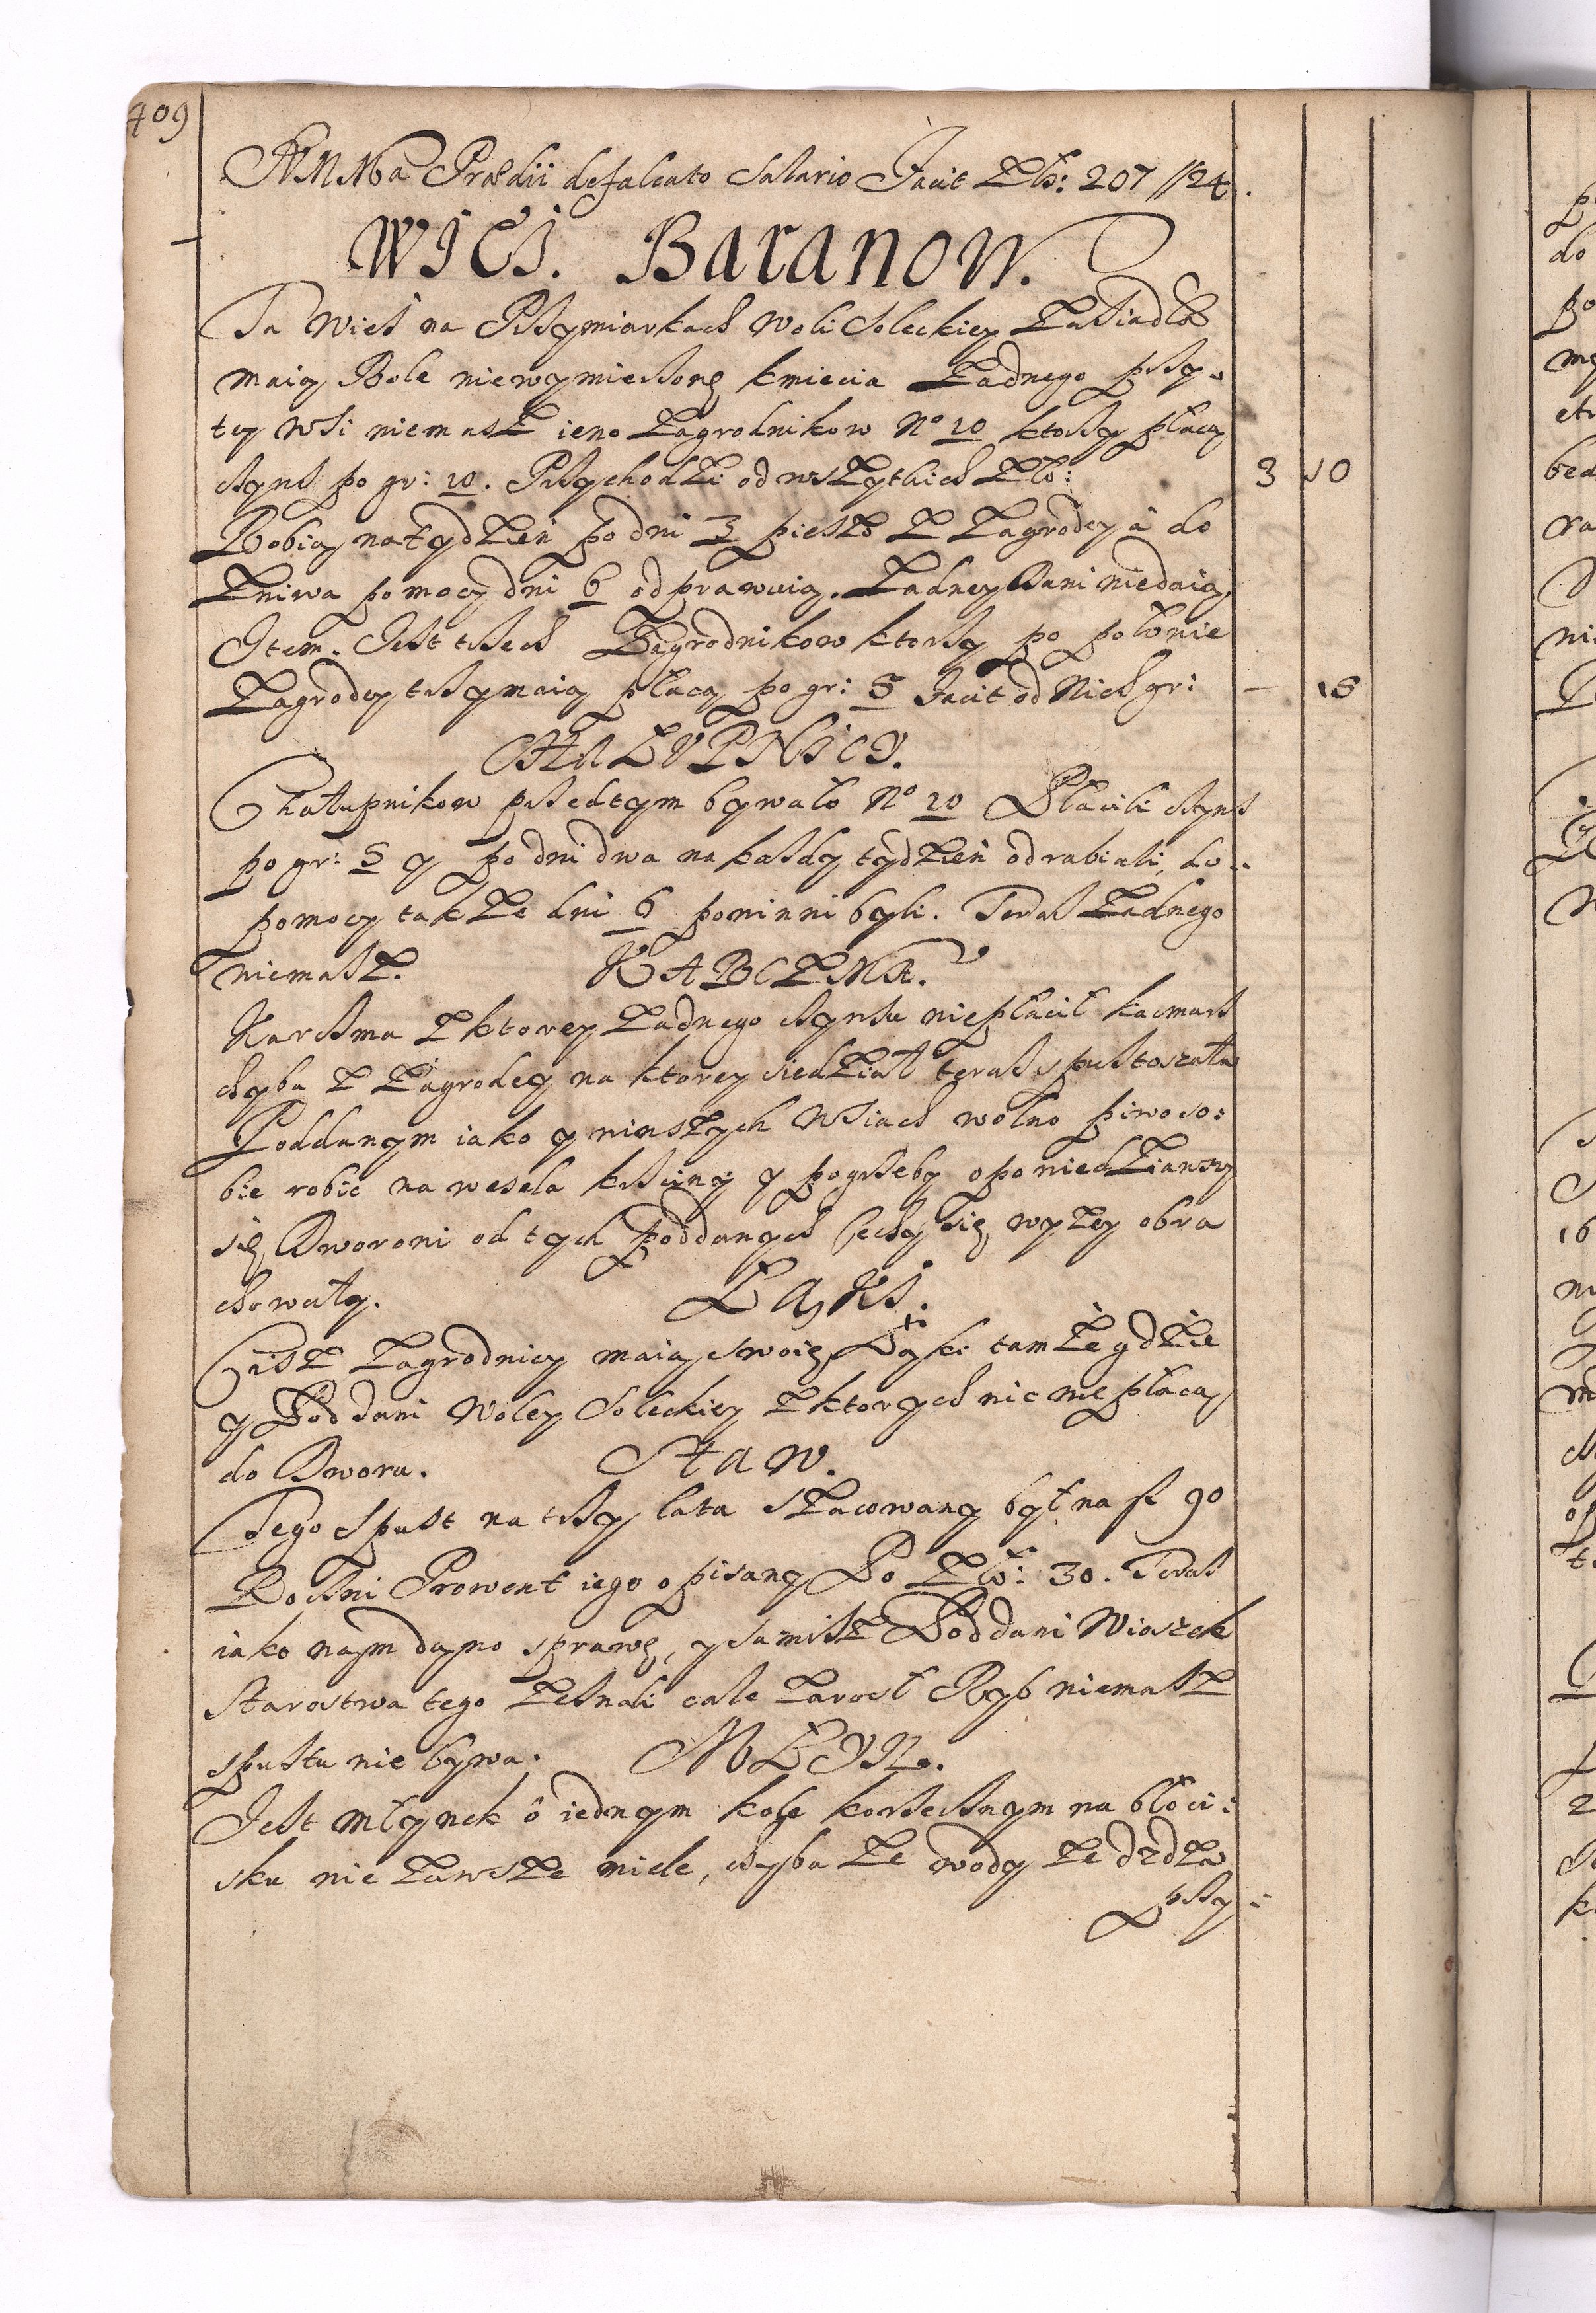 409
SVMMa Prædii defalcato Salario Facit Zło: 207 //24.
WIEŚ. Baranow.
Ta Wieś na Przymiarkach Woli Soleckiey Zasiadła
maią Role niewymierzone kmiecia Zadnego przy-
tey Wsi niemasz ieno Zagrodnikow No 10 ktorzy płacą
czynsz po gr: 10. Przychodzi od wszytkich Zło: 3 10
Robią na tydzień po dni 3 pieszo z Zagrody á do
Żniwa pomocy dni 6 odprawuią. Zadney Dani niedaią.
Item. Jest trzech Zagrodnikow ktorzy po połowie
Zagrody trzymaią płacą po gr: 5 Facit od Nich gr: — 15
CHAŁUPNICY.
Chałupnikow przedtym bywało No 10 Płacili czynsz
po gr: 5 y po dni dwa na kazdy tydzień odrabiali, do..
pomocy takze dni 6 powinni byli. Teraz Zadnego
niemasz. KARCZMA.
Karczma z ktorey Zadnego czynszu niepłacił kacmarz
chyba z Zagrody na ktorey siedział teraz spustoszała
Poddanym iako y ninszych Wsiach wolno piwo so:
bie robić na wesela krzciny y pogrzeby opowiedziawszy
się Dworowi od tych poddanych Czechy się wyzey obra
chowały. Łąki.
Ciż Zagrodnicy maią swoię Łąki tamże gdzie
y Poddani Woley Soleckiey z ktorych nic nie płacą
do Dworu. Staw.
Tego spust na trzy lata szacowany był na fl 90
Roczni Prowent iego opisany Po Zło: 30. Teraz
iako nam dano sprawę, y samisz Poddani Wiosek
Starostwa tego zeznali cale zarosł Ryb niemasz
spustu nie bywa. MŁYN.
Jest młynek ô iednym kole korzecznym na błoci:
sku nie zawsze miele, chyba ze wody ze dzdza
przy: